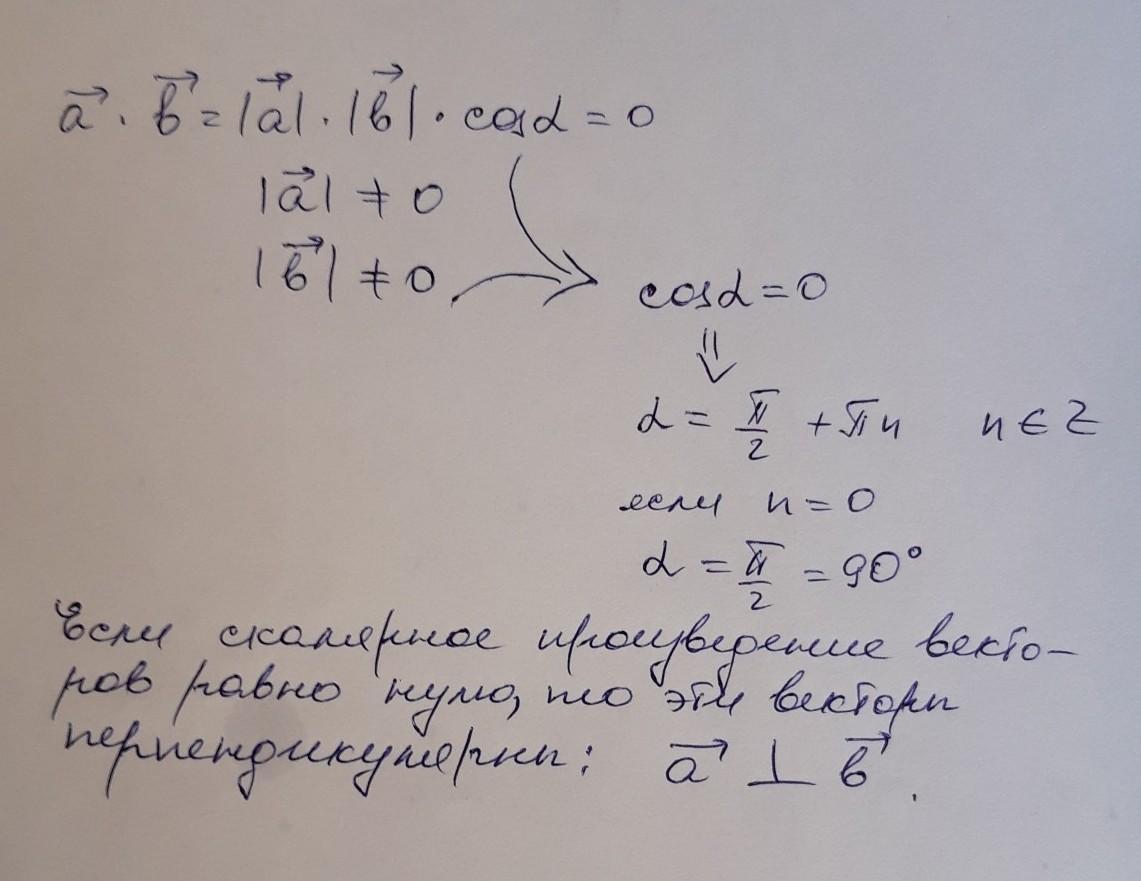 a⃗ · b⃗ = |a⃗| · |b⃗| · cosα = 0
|a⃗| ≠ 0
|b⃗| ≠ 0
cosα = 0
⇓
α = π/2 + πn n ∈ Z
если n = 0
α = π/2 = 90°
Если скалярное произведение векто-
ров равно нулю, то эти векторы
перпендикулярны: a⃗ ⊥ b⃗.